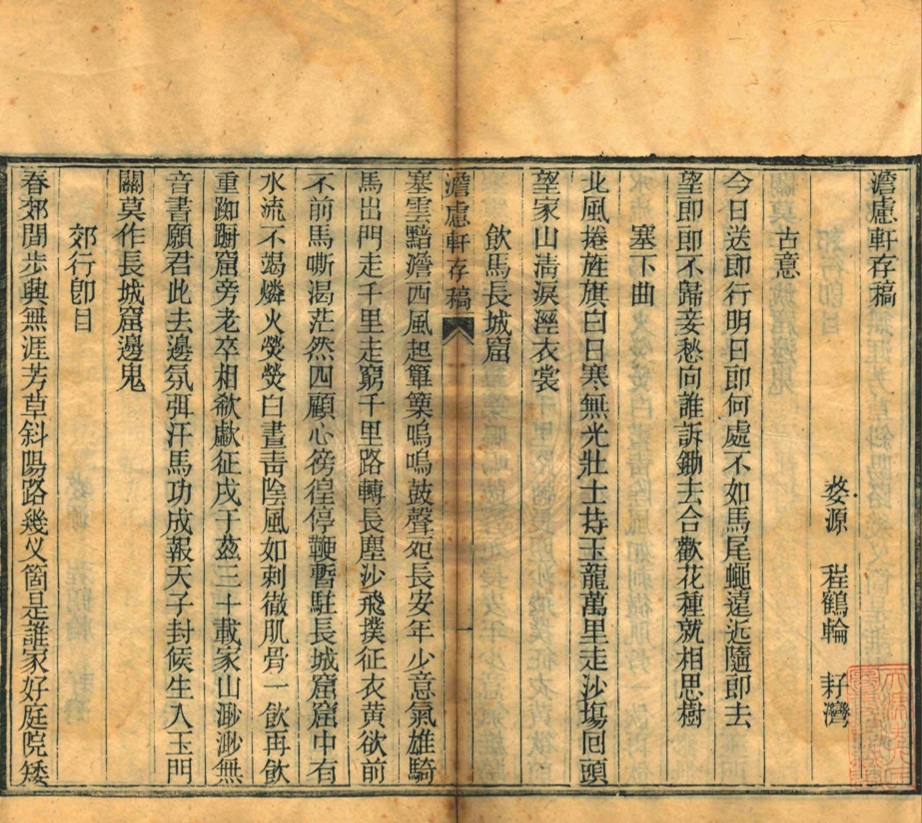 澹慮軒存稿
婺源　程鶴輪　耔灣
古意
今日送即行明日即何處不如馬尾蠅遠近隨即去
望即即不歸妾愁向誰訴鋤去合歡花種就相思樹
塞下曲
北風捲旌旗白日寒無光壯士持玉龍萬里走沙塲回頭
望家山淸淚溼衣裳
飲馬長城窟
澹慮軒存稿
一
塞雲黯澹西風起篳篥嗚嗚鼓聲死長安年少意氣雄騎
馬出門走千里走窮千里路轉長塵沙飛撲征衣黄欲前
不前馬嘶渴茫然四顧心徬徨停鞭暫駐長城窟窟中有
水流不竭燐火熒熒白晝靑陰風如刺徹肌骨一飲再飲
重踟蹰窟旁老卒相欷歔征戍于茲三十載家山渺渺無
音書願君此去邊氛弭汗馬功成報天子封候生入玉門
關莫作長城窟邊鬼
郊行卽目
春郊閒步興無涯芳草斜陽路幾义箇是誰家好庭院矮